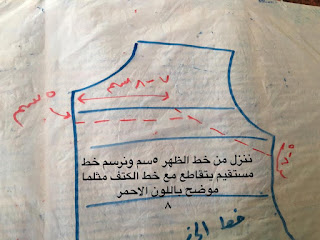 ٧-٨ سم
٥ سم
ننزل من خط الظهر ٥سم ونرسم خط
مستقيم يتقاطع مع خط الكتف مثلما
موضح باللون الاحمر
٨
خط